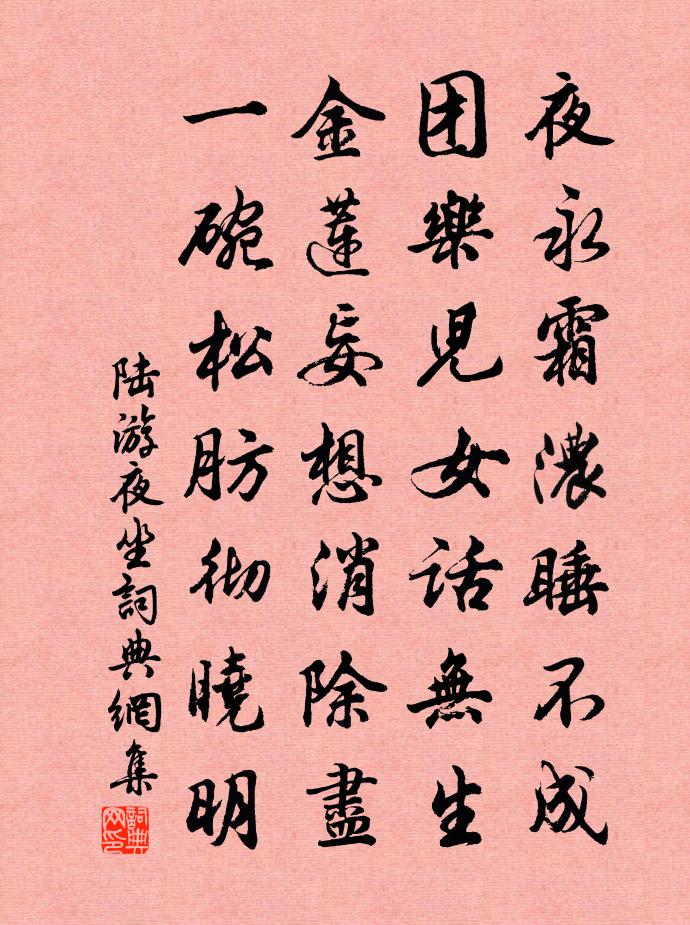 夜永霜濃睡不成
团樂兒女話無生
金蓮妄想消除盡
一碗松肪彻曉明
陆游夜坐詞典網集
詞典网印